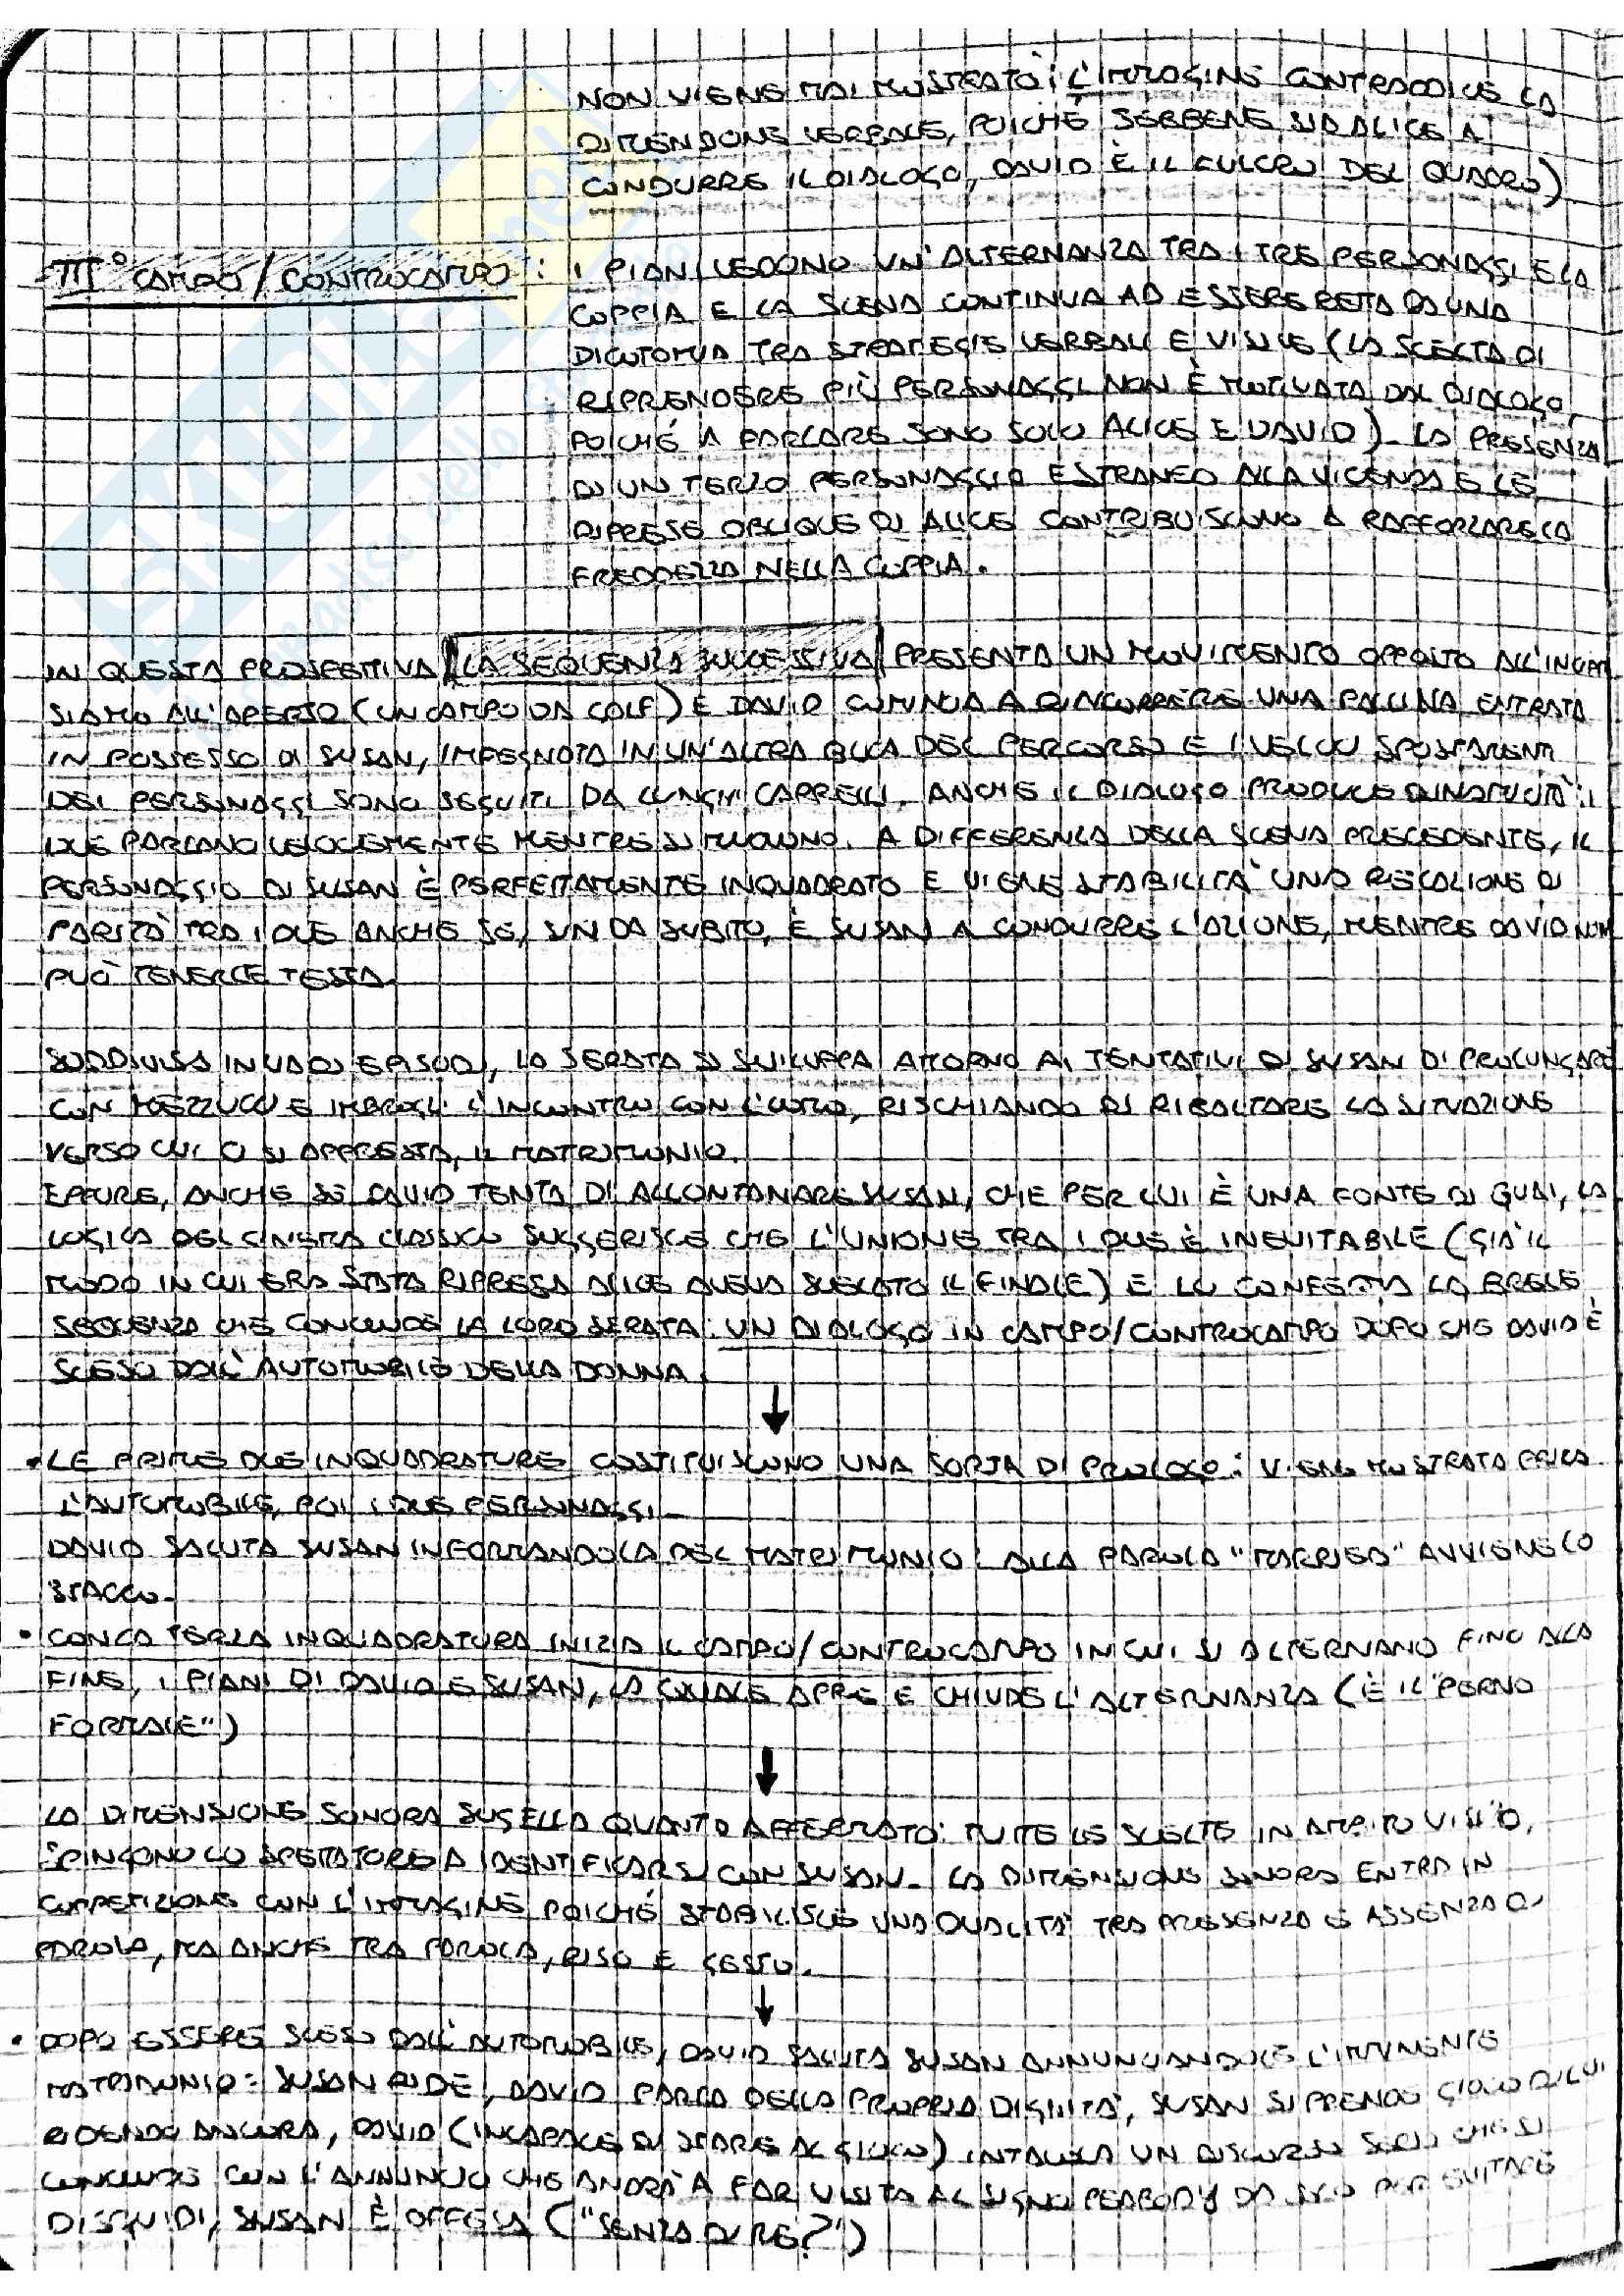 NON VIENE MAI MOSTRATO; L'IMMAGINE CONTRADDICE LA
DIMENSIONE VERBALE, POICHÉ SEBBENE SIA ALICE A
CONDURRE IL DIALOGO, DAVID È IL FULCRO DEL QUADRO)
III° CAMPO/CONTROCAMPO: I PIANI VEDONO UN'ALTERNANZA TRA I TRE PERSONAGGI E LA
COPPIA E LA SCENA CONTINUA AD ESSERE RETTA DA UNA
DICOTOMIA TRA STRATEGIE VERBALI E VISIVE (LA SCELTA DI
RIPRENDERE PIÙ PERSONAGGI NON È MOTIVATA DAL DIALOGO,
POICHÉ A PARLARE SONO SOLO ALICE E DAVID). LA PRESENZA
DI UN TERZO PERSONAGGIO ESTRANEO ALLA VICENDA E LE
RIPRESE OBLIQUE DI ALICE CONTRIBUISCONO A RAFFORZARE LA
FREDDEZZA NELLA COPPIA.
IN QUESTA PROSPETTIVA LA SEQUENZA SUCCESSIVA PRESENTA UN MOVIMENTO OPPOSTO
SIAMO ALL'APERTO (UN CAMPO DA GOLF) E DAVID COMINCIA A RINCORRERE UNA PALLINA ENTRATA
IN POSSESSO DI SUSAN, IMPEGNATA IN UN'ALTRA BUCA DEL PERCORSO E I VELOCI SPOSTAMENTI
DEI PERSONAGGI SONO SEGUITI DA LUNGHI CARRELLI. ANCHE IL DIALOGO PRODUCE DINAMICITÀ: I
DUE PARLANO VELOCEMENTE MENTRE SI MUOVONO. A DIFFERENZA DELLA SCENA PRECEDENTE, IL
PERSONAGGIO DI SUSAN È PERFETTAMENTE INQUADRATO E VIENE STABILITA UNA RELAZIONE DI
PARITÀ TRA I DUE ANCHE SE, SIN DA SUBITO, È SUSAN A CONDURRE L'AZIONE, MENTRE DAVID NON
PUÒ TENERLE TESTA.
SUDDIVISA IN VARI EPISODI, LA SERATA SI SVILUPPA ATTORNO AI TENTATIVI DI SUSAN DI PROLUNGARE
CON MEZZUCCI E IMBROGLI L'INCONTRO CON L'UOMO, RISCHIANDO DI RIBALTARE LA SITUAZIONE
VERSO CUI CI SI APPRESTA, IL MATRIMONIO.
EPPURE, ANCHE SE DAVID TENTA DI ALLONTANARE SUSAN, CHE PER LUI È UNA FONTE DI GUAI, LA
LOGICA DEL CINEMA CLASSICO SUGGERISCE CHE L'UNIONE TRA I DUE È INEVITABILE (GIÀ IL
MODO IN CUI ERA STATA RIPRESA ALICE AVEVA SVELATO IL FINALE) E LO CONFERMA LA BREVE
SEQUENZA CHE CONCLUDE LA LORO SERATA: UN DIALOGO IN CAMPO/CONTROCAMPO DOPO CHE DAVID È
SCESO DALL'AUTOMOBILE DELLA DONNA.
• LE PRIME DUE INQUADRATURE COSTITUISCONO UNA SORTA DI PROLOGO: VIENE MOSTRATA PRIMA
L'AUTOMOBILE, POI I DUE PERSONAGGI.
DAVID SALUTA SUSAN INFORMANDOLA DEL MATRIMONIO: ALLA PAROLA "MARRIED" AVVIENE LO
STACCO.
• CON LA TERZA INQUADRATURA INIZIA IL CAMPO/CONTROCAMPO IN CUI SI ALTERNANO FINO ALLA
FINE, I PIANI DI DAVID E SUSAN, LA QUALE APRE E CHIUDE L'ALTERNANZA (È IL "PERNO
FORMALE")
LA DIMENSIONE SONORA SUGELLA QUANTO AFFERMATO: TUTTE LE SCELTE IN AMBITO VISIVO,
SPINGONO LO SPETTATORE A IDENTIFICARSI CON SUSAN. LA DIMENSIONE SONORA ENTRA IN
COMPETIZIONE CON L'IMMAGINE POICHÉ STABILISCE UNA DUALITÀ TRA PRESENZA E ASSENZA DI
PAROLA, MA ANCHE TRA PAROLA, RISO E GESTO.
• DOPO ESSERE SCESO DALL'AUTOMOBILE, DAVID SALUTA SUSAN ANNUNCIANDOLE L'IMMINENTE
MATRIMONIO: SUSAN RIDE, DAVID PARLA DELLA PROPRIA DIGNITÀ, SUSAN SI PRENDE GIOCO DI LUI
RIDENDO ANCORA, DAVID (INCAPACE DI STARE AL GIOCO) INTAVOLA UN DISCORSO SERIO CHE SI
CONCLUDE CON L'ANNUNCIO CHE ANDRÀ A FAR VISITA AL SIGNOR PEABODY DA SOLO PER EVITARE
DISGUIDI, SUSAN È OFFESA ("SENZA DI ME?")